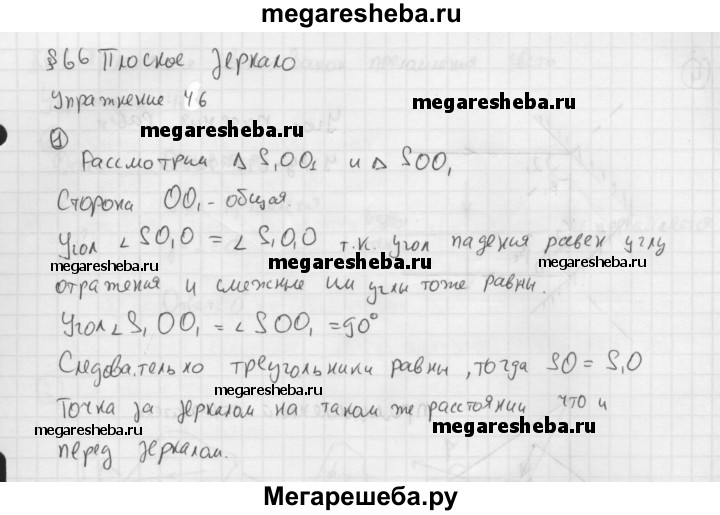 megaresheba.ru
§66 Плоское зеркало
Упражнение 46
megaresheba.ru
① megaresheba.ru
Рассмотрим Δ S₁OO₁ и Δ SOO₁
Сторона OO₁ - общая.
Угол ∠ SO₁O = ∠ S₁O₁O т.к. угол падения равен углу
megaresheba.ru megaresheba.ru megaresheba.ru
отражения и смежные им углы тоже равны.
Угол ∠ S₁OO₁ = ∠ SOO₁ = 90°
Следовательно треугольники равны, тогда SO = S₁O
megaresheba.ru
Точка за зеркалом на таком же расстоянии что и
megaresheba.ru megaresheba.ru
перед зеркалом.
Мегарешеба.ру